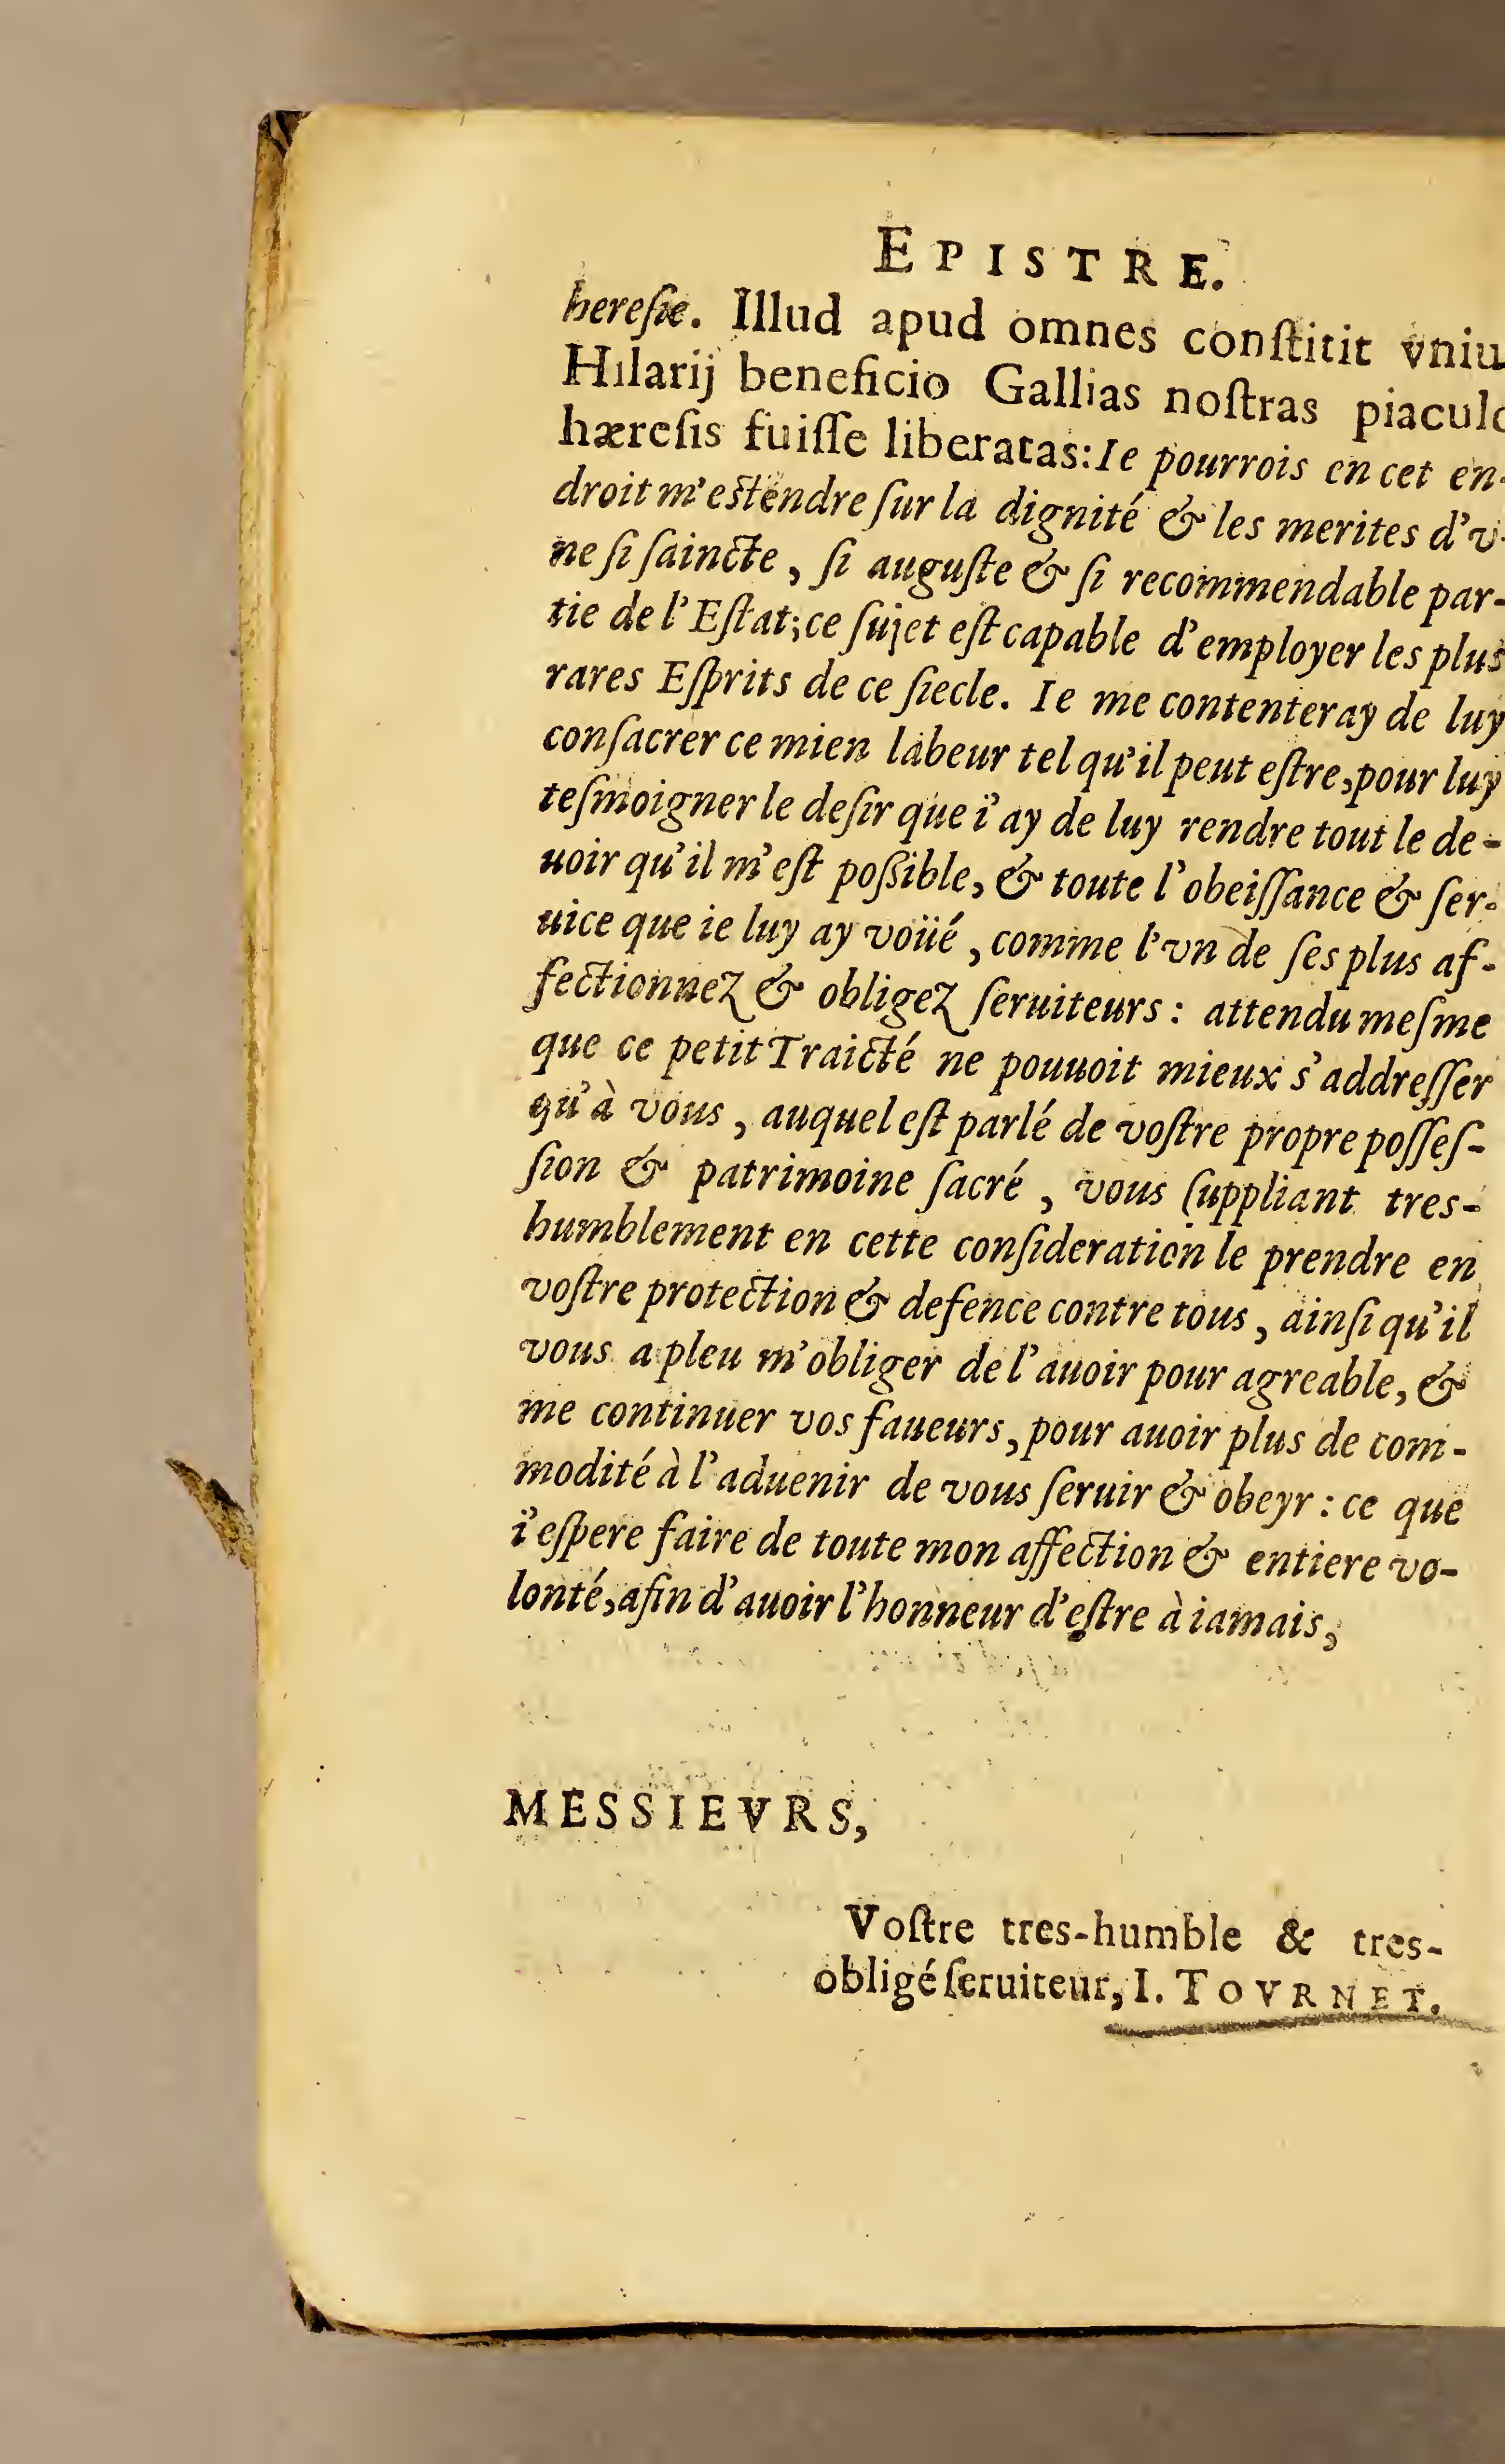 EPISTRE.
hereſie. Illud apud omnes conſtitit vniu
Hilarij beneficio Gallias noſtras piaculo
hæreſis fuiſſe liberatas: Ie pourrois en cet en-
droit m'eſtendre ſur la dignité & les merites d'v-
ne ſi ſaincte, ſi auguſte & ſi recommendable par-
tie de l'Eſtat; ce ſujet eſt capable d'employer les plus
rares Eſprits de ce ſiecle. Ie me contenteray de luy
conſacrer ce mien labeur tel qu'il peut eſtre, pour luy
teſmoigner le deſir que i'ay de luy rendre tout le de-
uoir qu'il m'eſt poßible, & toute l'obeiſſance & ſer-
uice que ie luy ay voüé, comme l'vn de ſes plus af-
fectionnez & obligez ſeruiteurs: attendu meſme
que ce petit Traicté ne pouuoit mieux s'addreſſer
qu'à vous, auquel eſt parlé de voſtre propre poſſeſ-
ſion & patrimoine ſacré, vous ſuppliant tres-
humblement en cette conſideration le prendre en
voſtre protection & defence contre tous, ainſi qu'il
vous a pleu m'obliger de l'auoir pour agreable, &
me continuer vos faueurs, pour auoir plus de com-
modité à l'aduenir de vous ſeruir & obeyr: ce que
i'eſpere faire de toute mon affection & entiere vo-
lonté, afin d'auoir l'honneur d'eſtre à iamais,
MESSIEVRS,
Voſtre tres-humble & tres-
obligé ſeruiteur, I. TOVRNET.